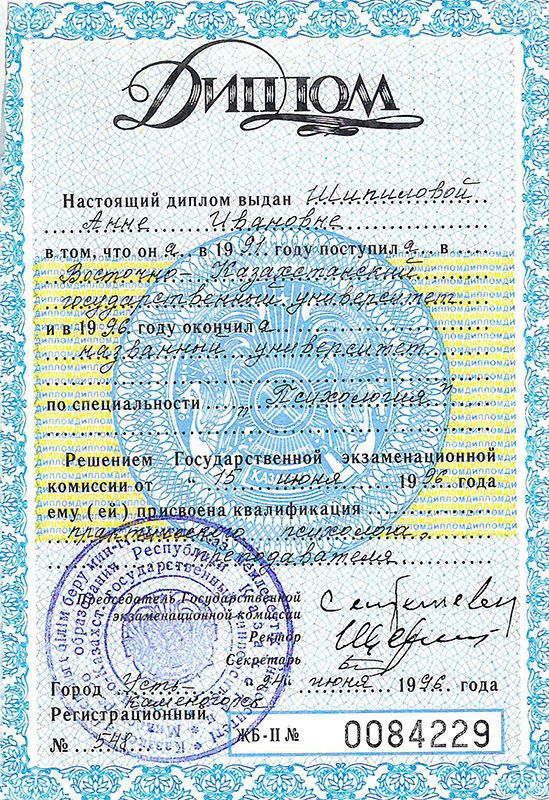 ДИПЛОМ
Настоящий диплом выдан Шипиловой
Анне Ивановне
в том, что он а в 1991 году поступил а в
Восточно-Казахстанский
государственный университет
и в 1996 году окончил а
названный университет
по специальности „Психология"
Решением Государственной экзаменационной
комиссии от " 15 июня 1996 года
ему (ей) присвоена квалификация
практического психолога,
преподавателя
Председатель Государственной
экзаменационной комиссии
Ректор
Секретарь
Город Усть-Каменогорск " 24 " июня 1996 года
Регистрационный
№ 548 ЖБ-II № 0084229